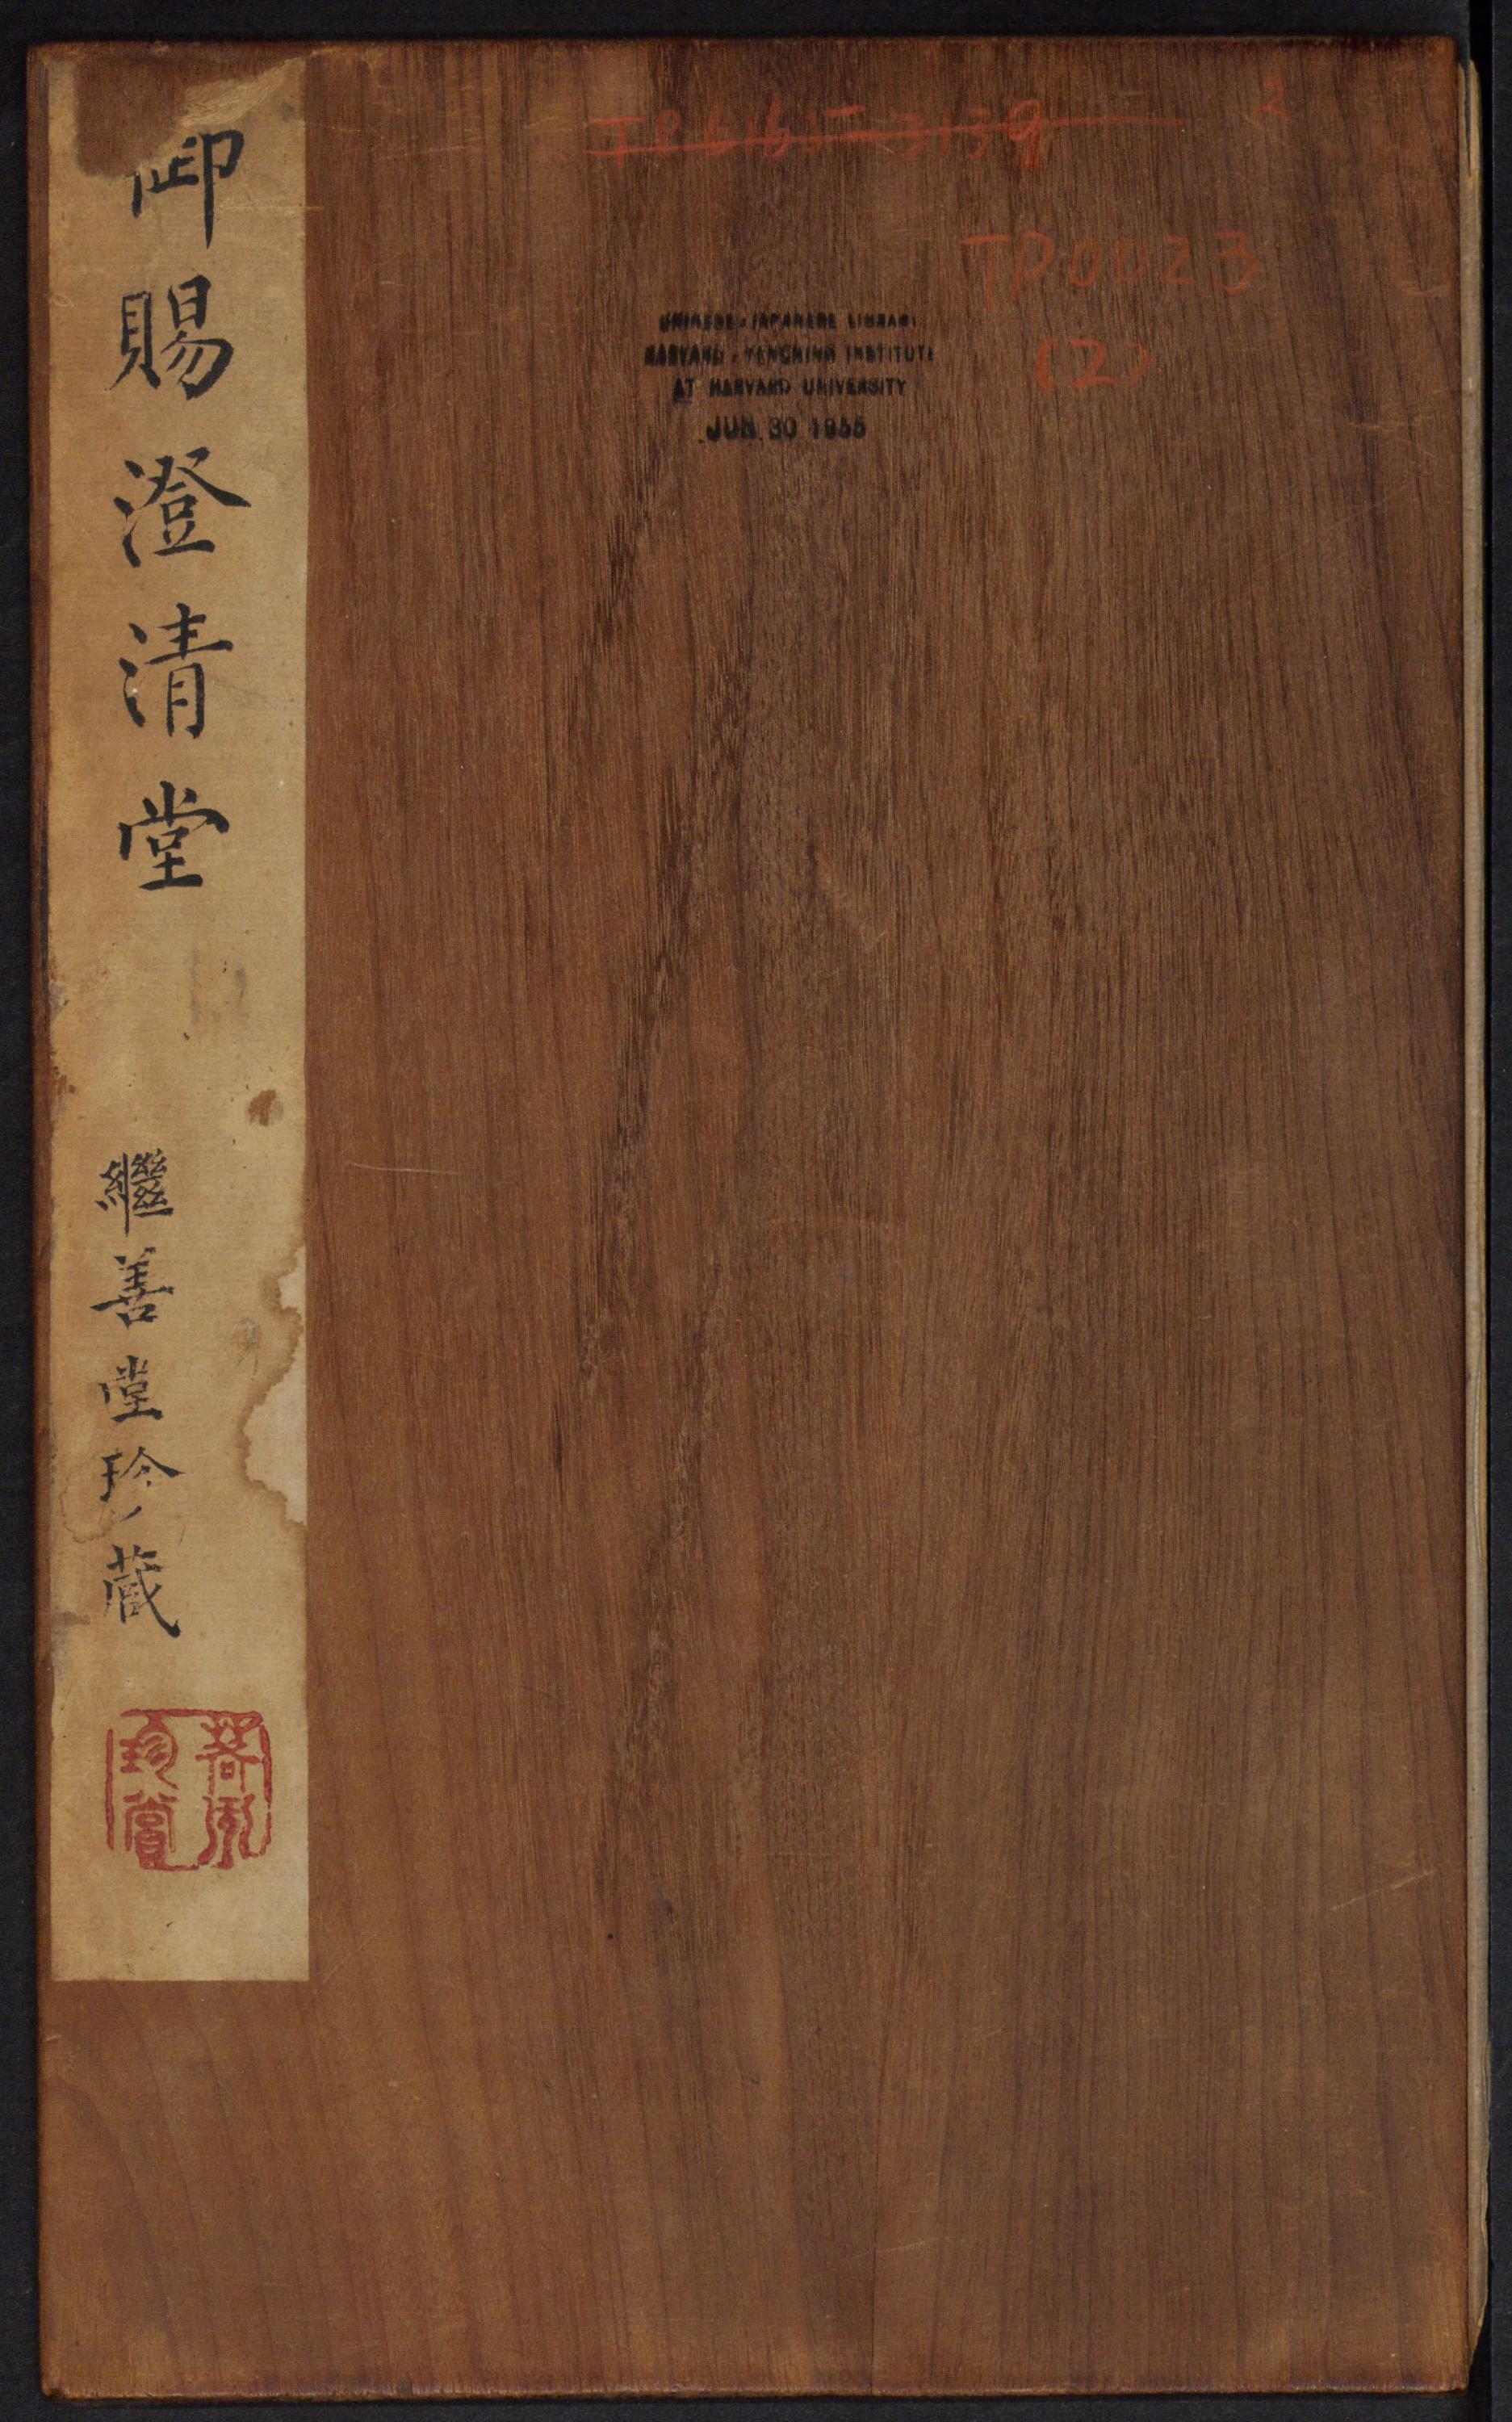 御賜澄清堂
繼善堂珍藏
珍賞
TP 6165-3139
2
TP0023
(2)
CHINESE-JAPANESE LIBRARY
HARVARD-YENCHING INSTITUTE
AT HARVARD UNIVERSITY
JUN 30 1955